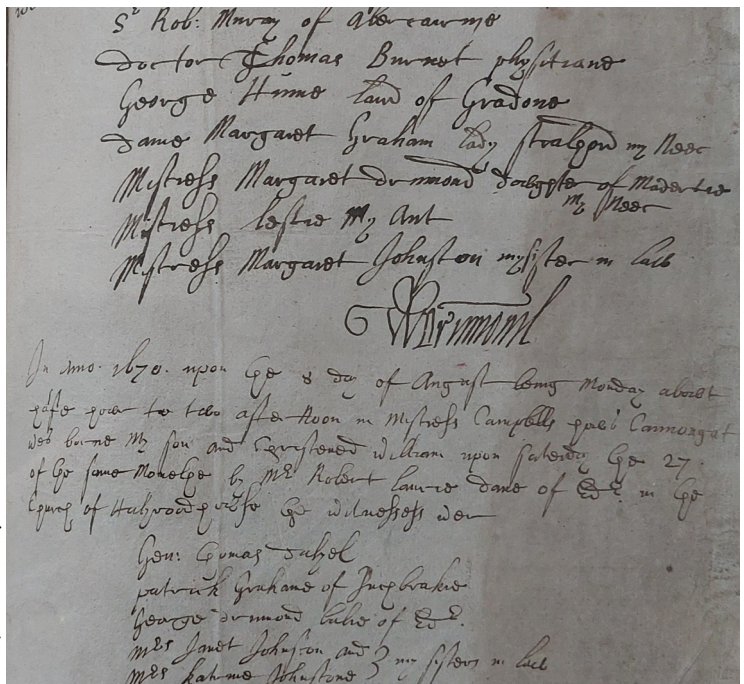 Sr Rob: Muray of Abercairnie
doctor Thomas Burnet phisitiane
George Hume laird of Gradone
dame Margaret Graham lady my Neec
Mistress Margaret drumond doughter of Maderties
my Neec
Mistress leslie My Ant
Mistress Margaret Johnston my sister in law
WDrumond
In Anno. 1670. upon the 8 day of August being Monday about
hafe hour to two after Noon in Mistress Campbells Cannongat
wes borne My son and Christened William upon Saterday the 27
of the same Monethe by Mr Robert laurie dane of Edr. in the
Church of the witnesses wer
Gen: Thomas Dalyel
patrick Grahame of Inchbrakie
George drumond balie of Edr.
Mrs Janet Johnston and } my sisters in law
Mrs Katrine Johnstone